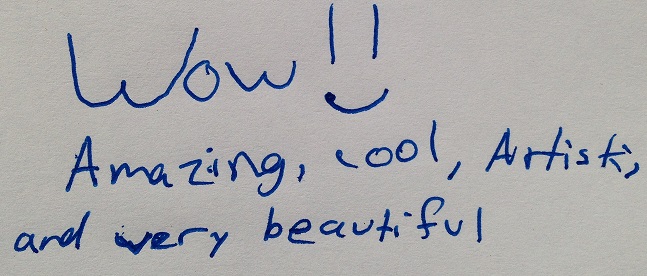 Wow !!
Amazing, cool, Artistic,
and very beautiful